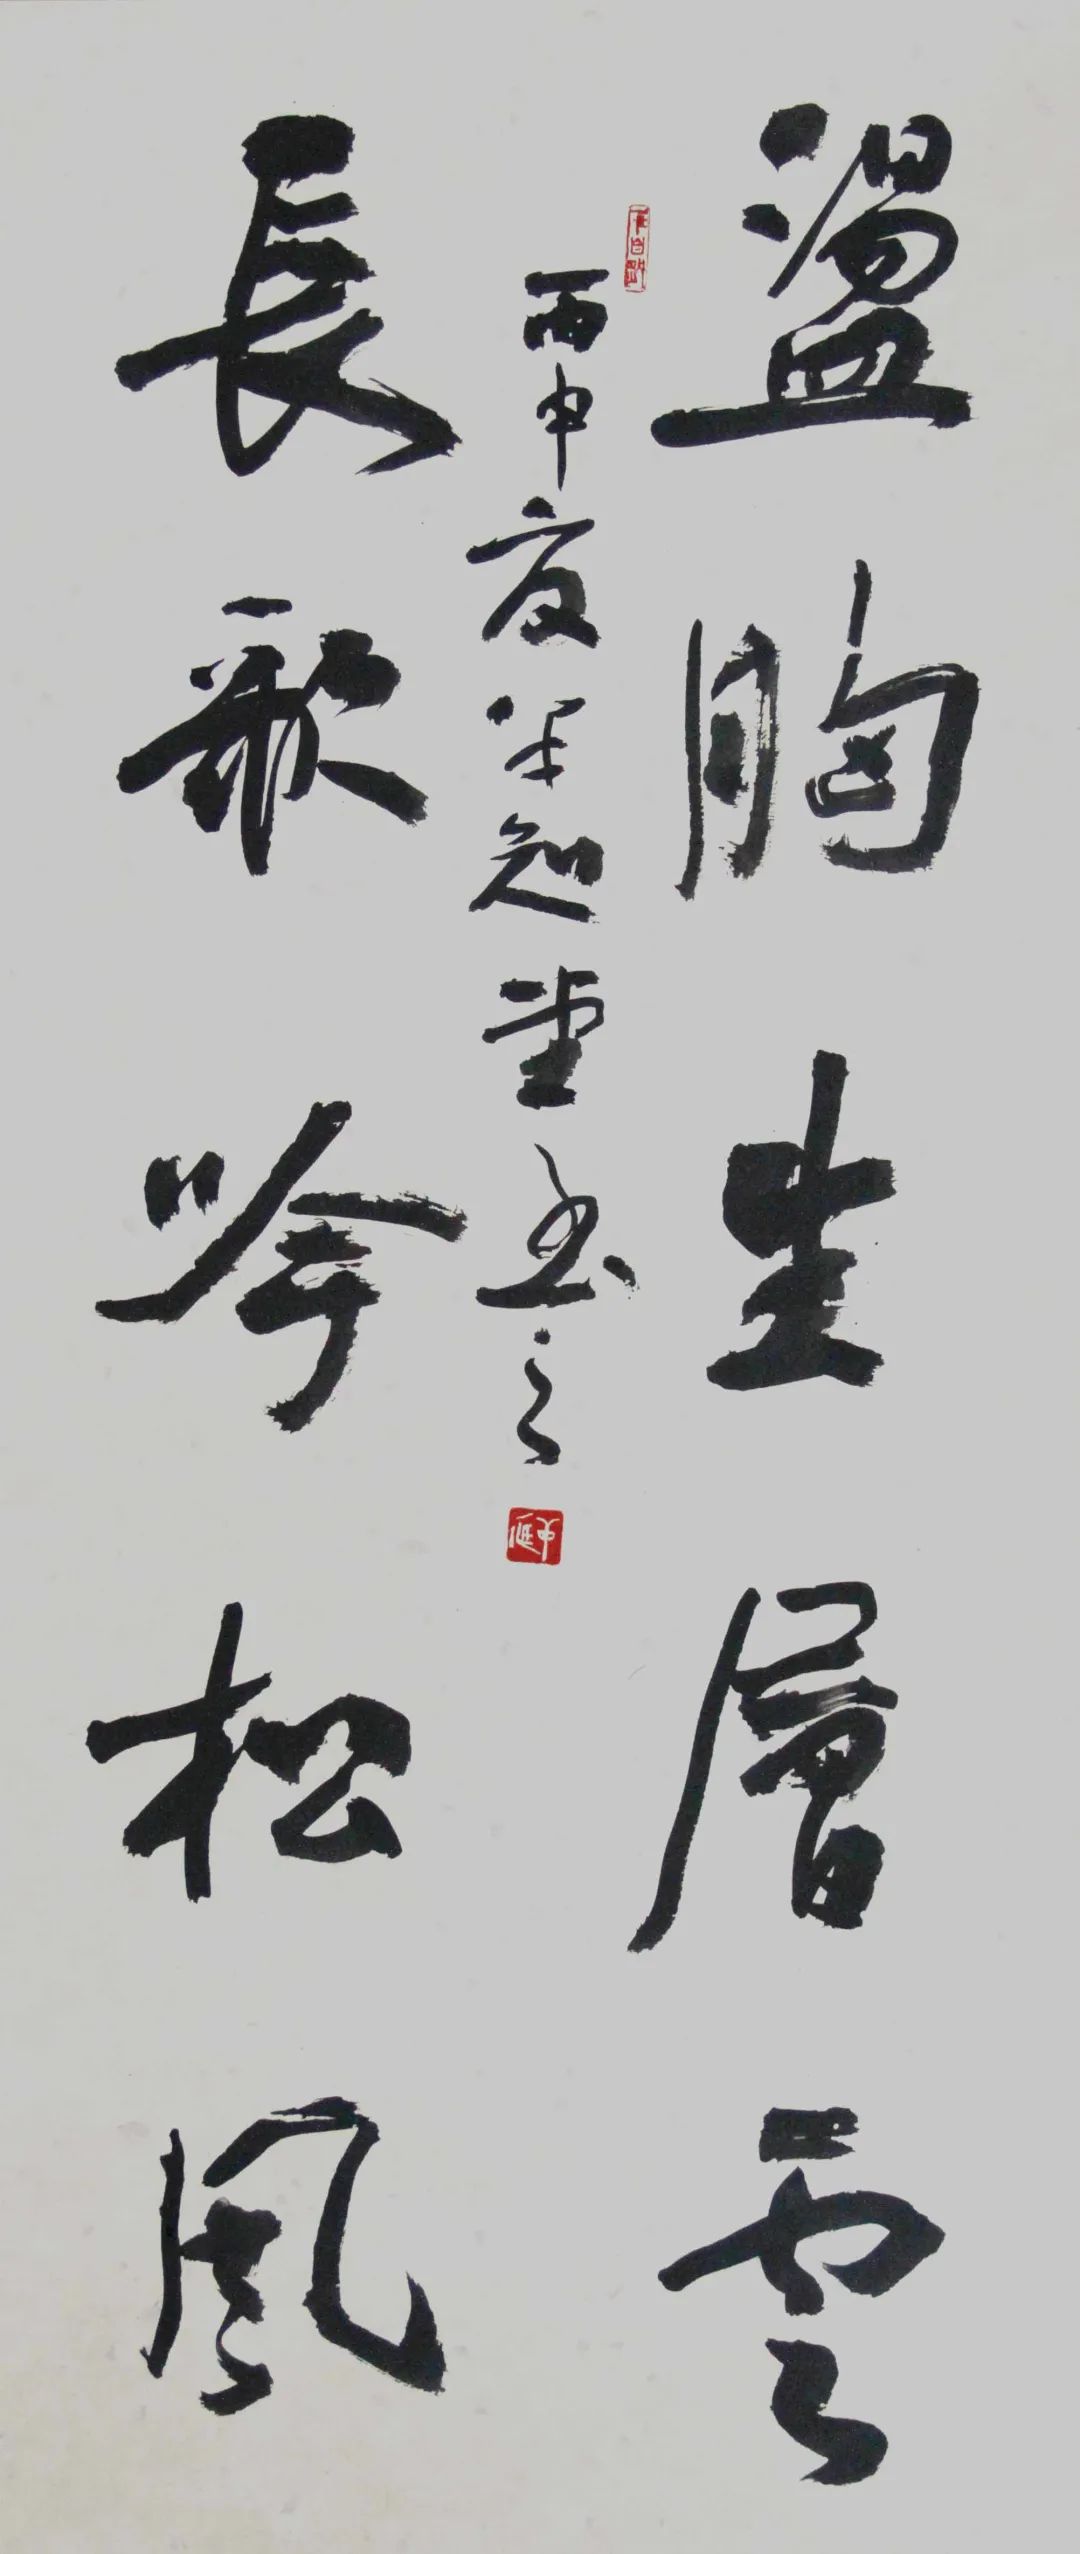 盪胸生層雲
長歌吟松風
丙申夏半知堂书之